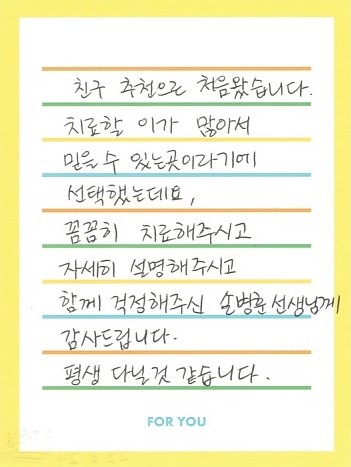 친구 추천으로 처음왔습니다.
치료할 이가 많아서
믿을 수 있는곳이라기에
선택했는데요,
꼼꼼히 치료해주시고
자세히 설명해주시고
함께 걱정해주신 손병훈선생님께
감사드립니다.
평생 다닐것 같습니다.
FOR YOU